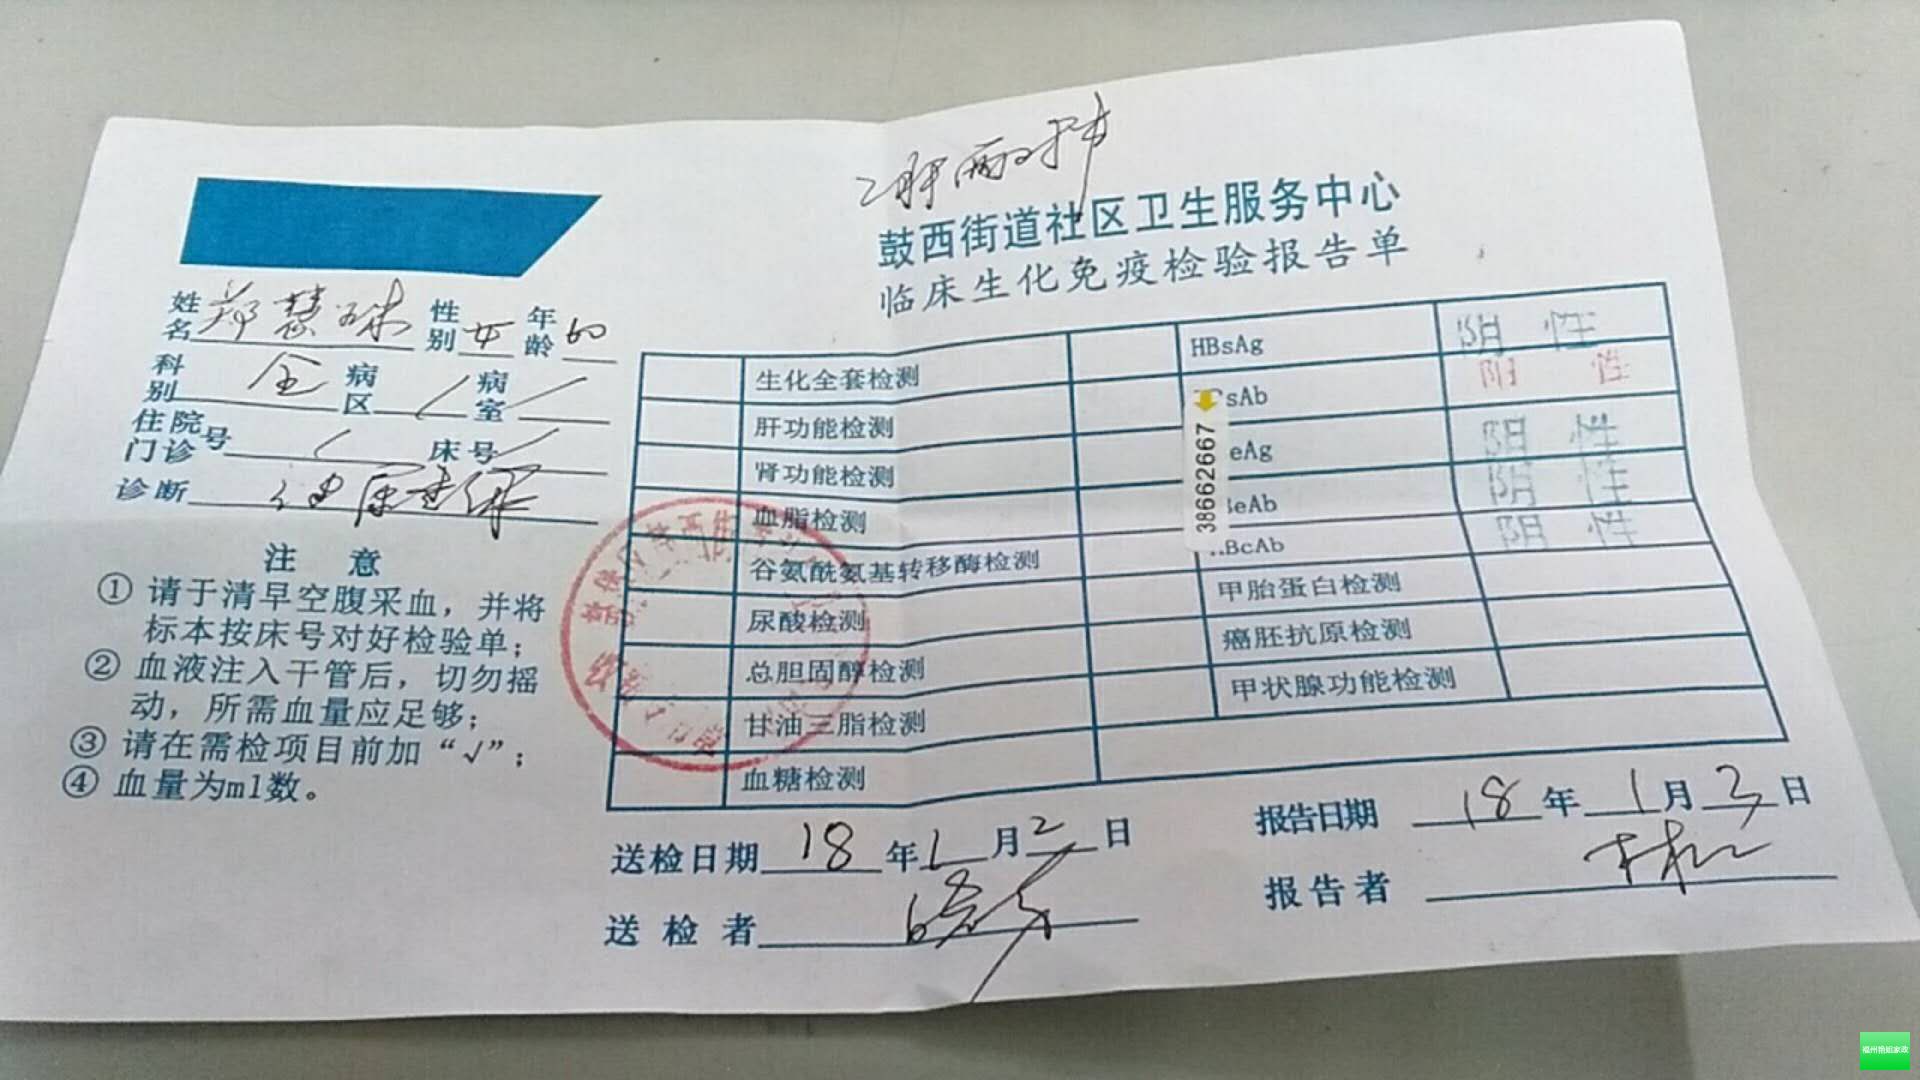 乙肝两对半
鼓西街道社区卫生服务中心
临床生化免疫检验报告单
姓名 郑慧珠 性别 女 年龄 60
科别 全 病区 / 病室 /
住院门诊号 / 床号 /
诊断 健康查体
注 意
① 请于清早空腹采血，并将
标本按床号对好检验单；
② 血液注入干管后，切勿摇
动，所需血量应足够；
③ 请在需检项目前加“√”；
④ 血量为ml数。
生化全套检测
肝功能检测
肾功能检测
血脂检测
谷氨酰氨基转移酶检测
尿酸检测
总胆固醇检测
甘油三脂检测
血糖检测
HBsAg 阴 性
sAb 阳 性
eAg 阴 性
eAb 阴 性
BcAb 阴 性
甲胎蛋白检测
癌胚抗原检测
甲状腺功能检测
38662667
送检日期 18 年 1 月 2 日
送检者
报告日期 18 年 1 月 3 日
报告者
福州艳姐家政